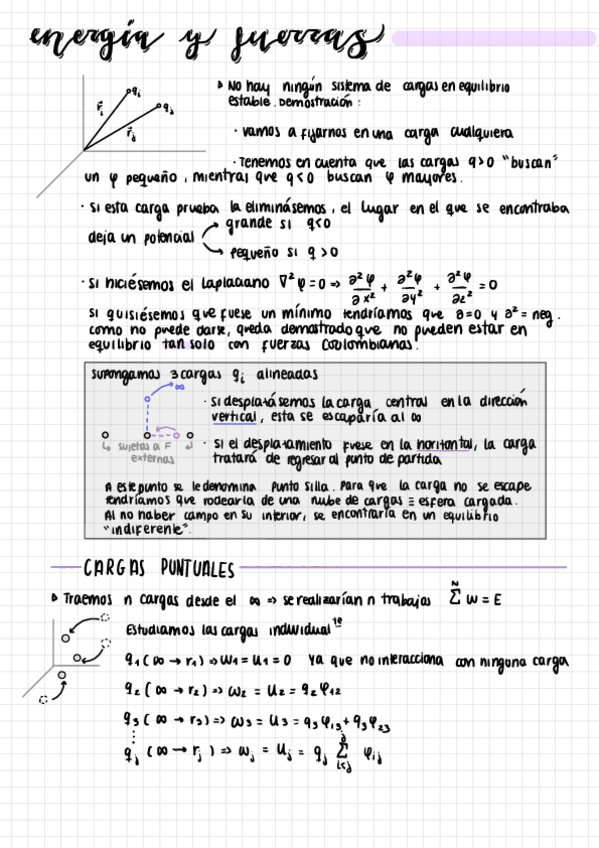 energía y fuerzas
qi
qj
r̄i
r̄j
▷ No hay ningún sistema de cargas en equilibrio
estable. Demostración:
· vamos a fijarnos en una carga cualquiera
· Tenemos en cuenta que las cargas q>0 "buscan"
un φ pequeño, mientras que q<0 buscan φ mayores.
· Si esta carga prueba la eliminásemos, el lugar en el que se encontraba
grande si q<0
deja un potencial
pequeño si q>0
· Si hiciésemos el laplaciano ∇²φ=0 ⇒ ∂²φ/∂x² + ∂²φ/∂y² + ∂²φ/∂z² = 0
Si quisiésemos que fuese un mínimo tendríamos que ∂=0 y ∂²= neg.
como no puede darse, queda demostrado que no pueden estar en
equilibrio tan solo con fuerzas Coulombianas.
Supongamos 3 cargas qi alineadas
∞
· Si desplazásemos la carga central en la dirección
vertical, esta se escaparía al ∞
· Si el desplazamiento fuese en la horizontal, la carga
tratará de regresar al punto de partida
sujetas a F
externas
A este punto se le denomina Punto Silla. Para que la carga no se escape
tendríamos que rodearla de una nube de cargas ≡ esfera cargada.
Al no haber campo en su interior, se encontraría en un equilibrio
"indiferente".
CARGAS PUNTUALES
▷ Traemos n cargas desde el ∞ ⇒ se realizarían n trabajos Σ^N W = E
Estudiamos las cargas individual^te
q1 (∞ → r1) ⇒ W1 = U1 = 0 ya que no interacciona con ninguna carga
q2 (∞ → r2) ⇒ W2 = U2 = q2 φ12
q3 (∞ → r3) ⇒ W3 = U3 = q3 φ13 + q3 φ23
⋮
qj (∞ → rj) ⇒ Wj = Uj = qj Σ^j_{i<j} φij